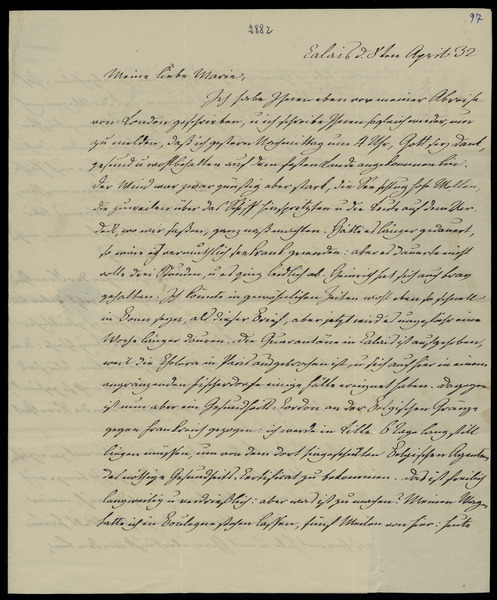 2882
97
Calais d. 8ten April 32
Meine liebe Marie,
Ich habe Ihnen eben vor meiner Abreise
von London geschrieben, u ich schreibe Ihnen sogleich wieder, um
zu melden, daß ich gestern Nachmittag um 4 Uhr, Gott sey Dank,
gesund u wohlbehalten auf dem festen Lande angekommen bin.
Der Wind war zwar günstig aber stark, die See schlug hohe Wellen,
die zuweilen über das Schiff hinspritzten u die Leute auf dem Ver-
deck, wo wir saßen, ganz naß machten. Hätte es länger gedauert,
so wäre ich vermuthlich seekrank geworden: aber es dauerte nicht
volle drei Stunden, u es ging leidlich ab. Heinrich hat sich auch brav
gehalten. Ich könnte in gewöhnlichen Zeiten wohl eben so schnell
in Bonn seyn, als dieser Brief, aber jetzt wird es ungefähr eine
Woche länger dauern. Die Quarantäne in Calais ist aufgehoben,
weil die Cholera in Paris ausgebrochen ist, u sich auch hier in einem
angränzenden Fischerdorfe einige Fälle ereignet haben. Dagegen
ist nun aber ein Gesundheits-Cordon an der Belgischen Gränze
gegen Frankreich gezogen: ich werde in Lille 6 Tage lang still
liegen müssen, um von dem dort eingesetzten Belgischen Agenten
das nöthige Gesundheits-Certificat zu bekommen. Das ist freilich
langweilig u verdrießlich: aber was ist zu machen? Meinen Wagen
hatte ich in Boulogne stehen lassen, fünf Meilen von hier: heute